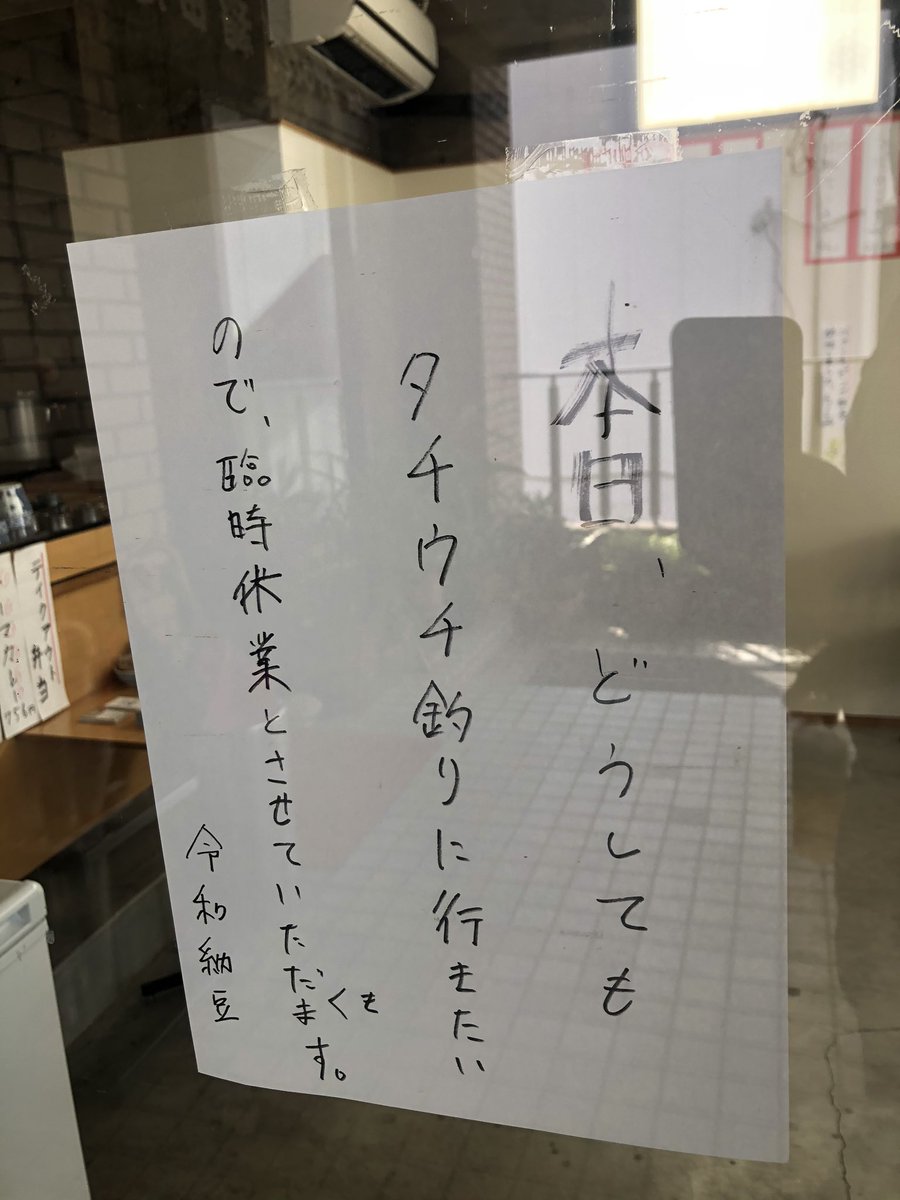 本日、どうしても
タチウチ釣りに行きたい
ので、臨時休業とさせていただきます。
令和納豆
テイクアウト弁当